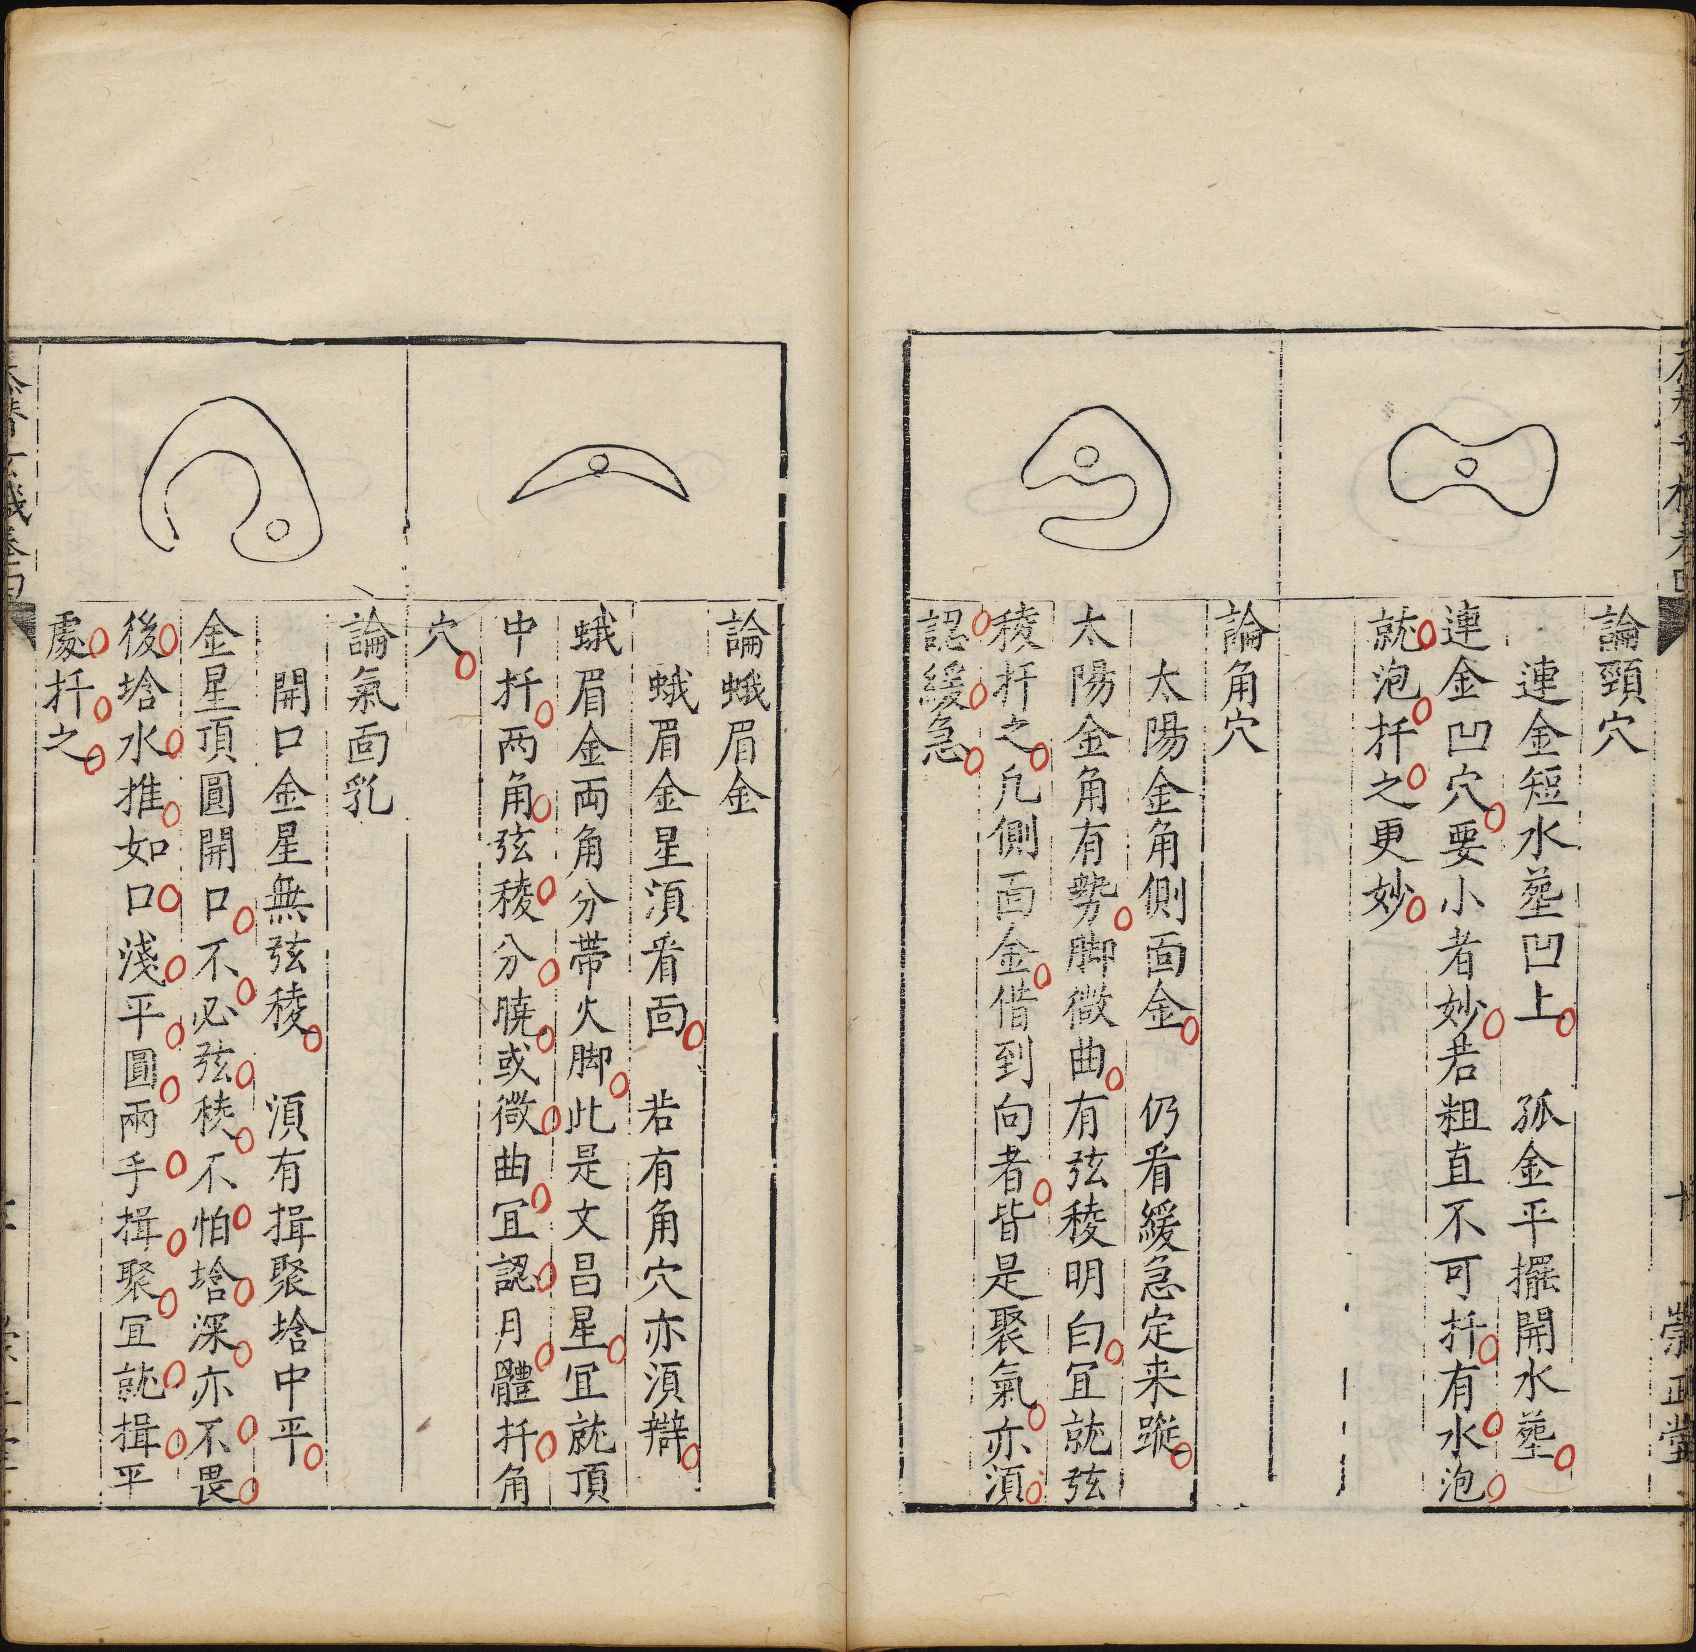 論頸穴
連金短水塟凹上　孤金平擺開水塟
連金凹穴要小者妙若粗直不可扦有水泡
就泡扦之更妙
論角穴
太陽金角側面金　仍看緩急定来蹤
太陽金角有勢脚微曲有弦稜明白宜就弦
稜扦之凡側面金借到向者皆是聚氣亦湏
認緩急
崇正堂
論蛾眉金
蛾眉金星湏看面　若有角穴亦湏辯
蛾眉金両角分帶火脚此是文昌星宜就頂
中扦两角弦稜分曉或微曲宜認月體扦角
穴
論氣面乳
開口金星無弦稜　湏有揖聚垥中平
金星頂圓開口不必弦稜不怕垥深亦不畏
後垥水推如口淺平圓兩手揖聚宜就揖平
處扦之